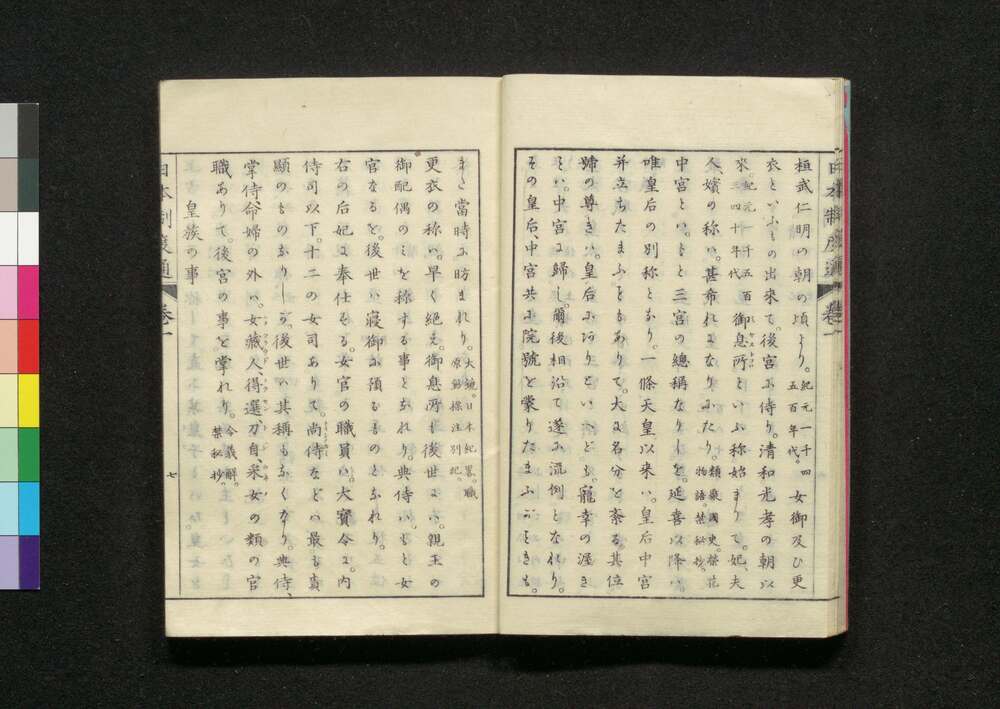 日本制度通 卷一
桓武仁明の朝の頃より。紀元一千四五百年代。女御及ひ更
衣といふもの出來て。後宮に侍り。清和光孝の朝以
來。紀元一千五百三四十年代御息所といふ称始まりて。妃、夫
人、嬪の称ハ。甚希れになりにたり。類聚國史。榮花物語。禁秘抄。
中宮とハ。もと三宮の總稱なりしを。延喜以降ハ。
唯皇后の別称となり。一條天皇以来ハ。皇后中宮
并立ちたまふこともありて。大に名分を紊る。其位
號の尊きハ。皇后にありといへども。寵幸の渥き
ハ。中宮に歸し。爾後相沿て遂に流例となれり。
その皇后、中宮共に院號を蒙りたまふごときも。
また當時に昉まれり。大鏡。日本紀畧。職原鈔標注別記。
更衣の称ハ。早く絶え。御息所も後世にハ。親王の
御配偶のミを称する事となれり。典侍ハ。もと女
官なるを。後世ハ寢御に預るものとなれり。
右の后妃に奉仕する。女官の職員ハ。大寳令に。内
侍司以下。十二の女司ありて。尚侍などハ最も貴
顯のものなりしが。後世ハ其稱もなくなり。典侍、
掌侍、命婦の外ハ。女藏人、得選、刀自、采女の類の官
職ありて。後宮の事を掌れり。令義解。禁秘抄。
皇族の事
日本制度通 卷一
七